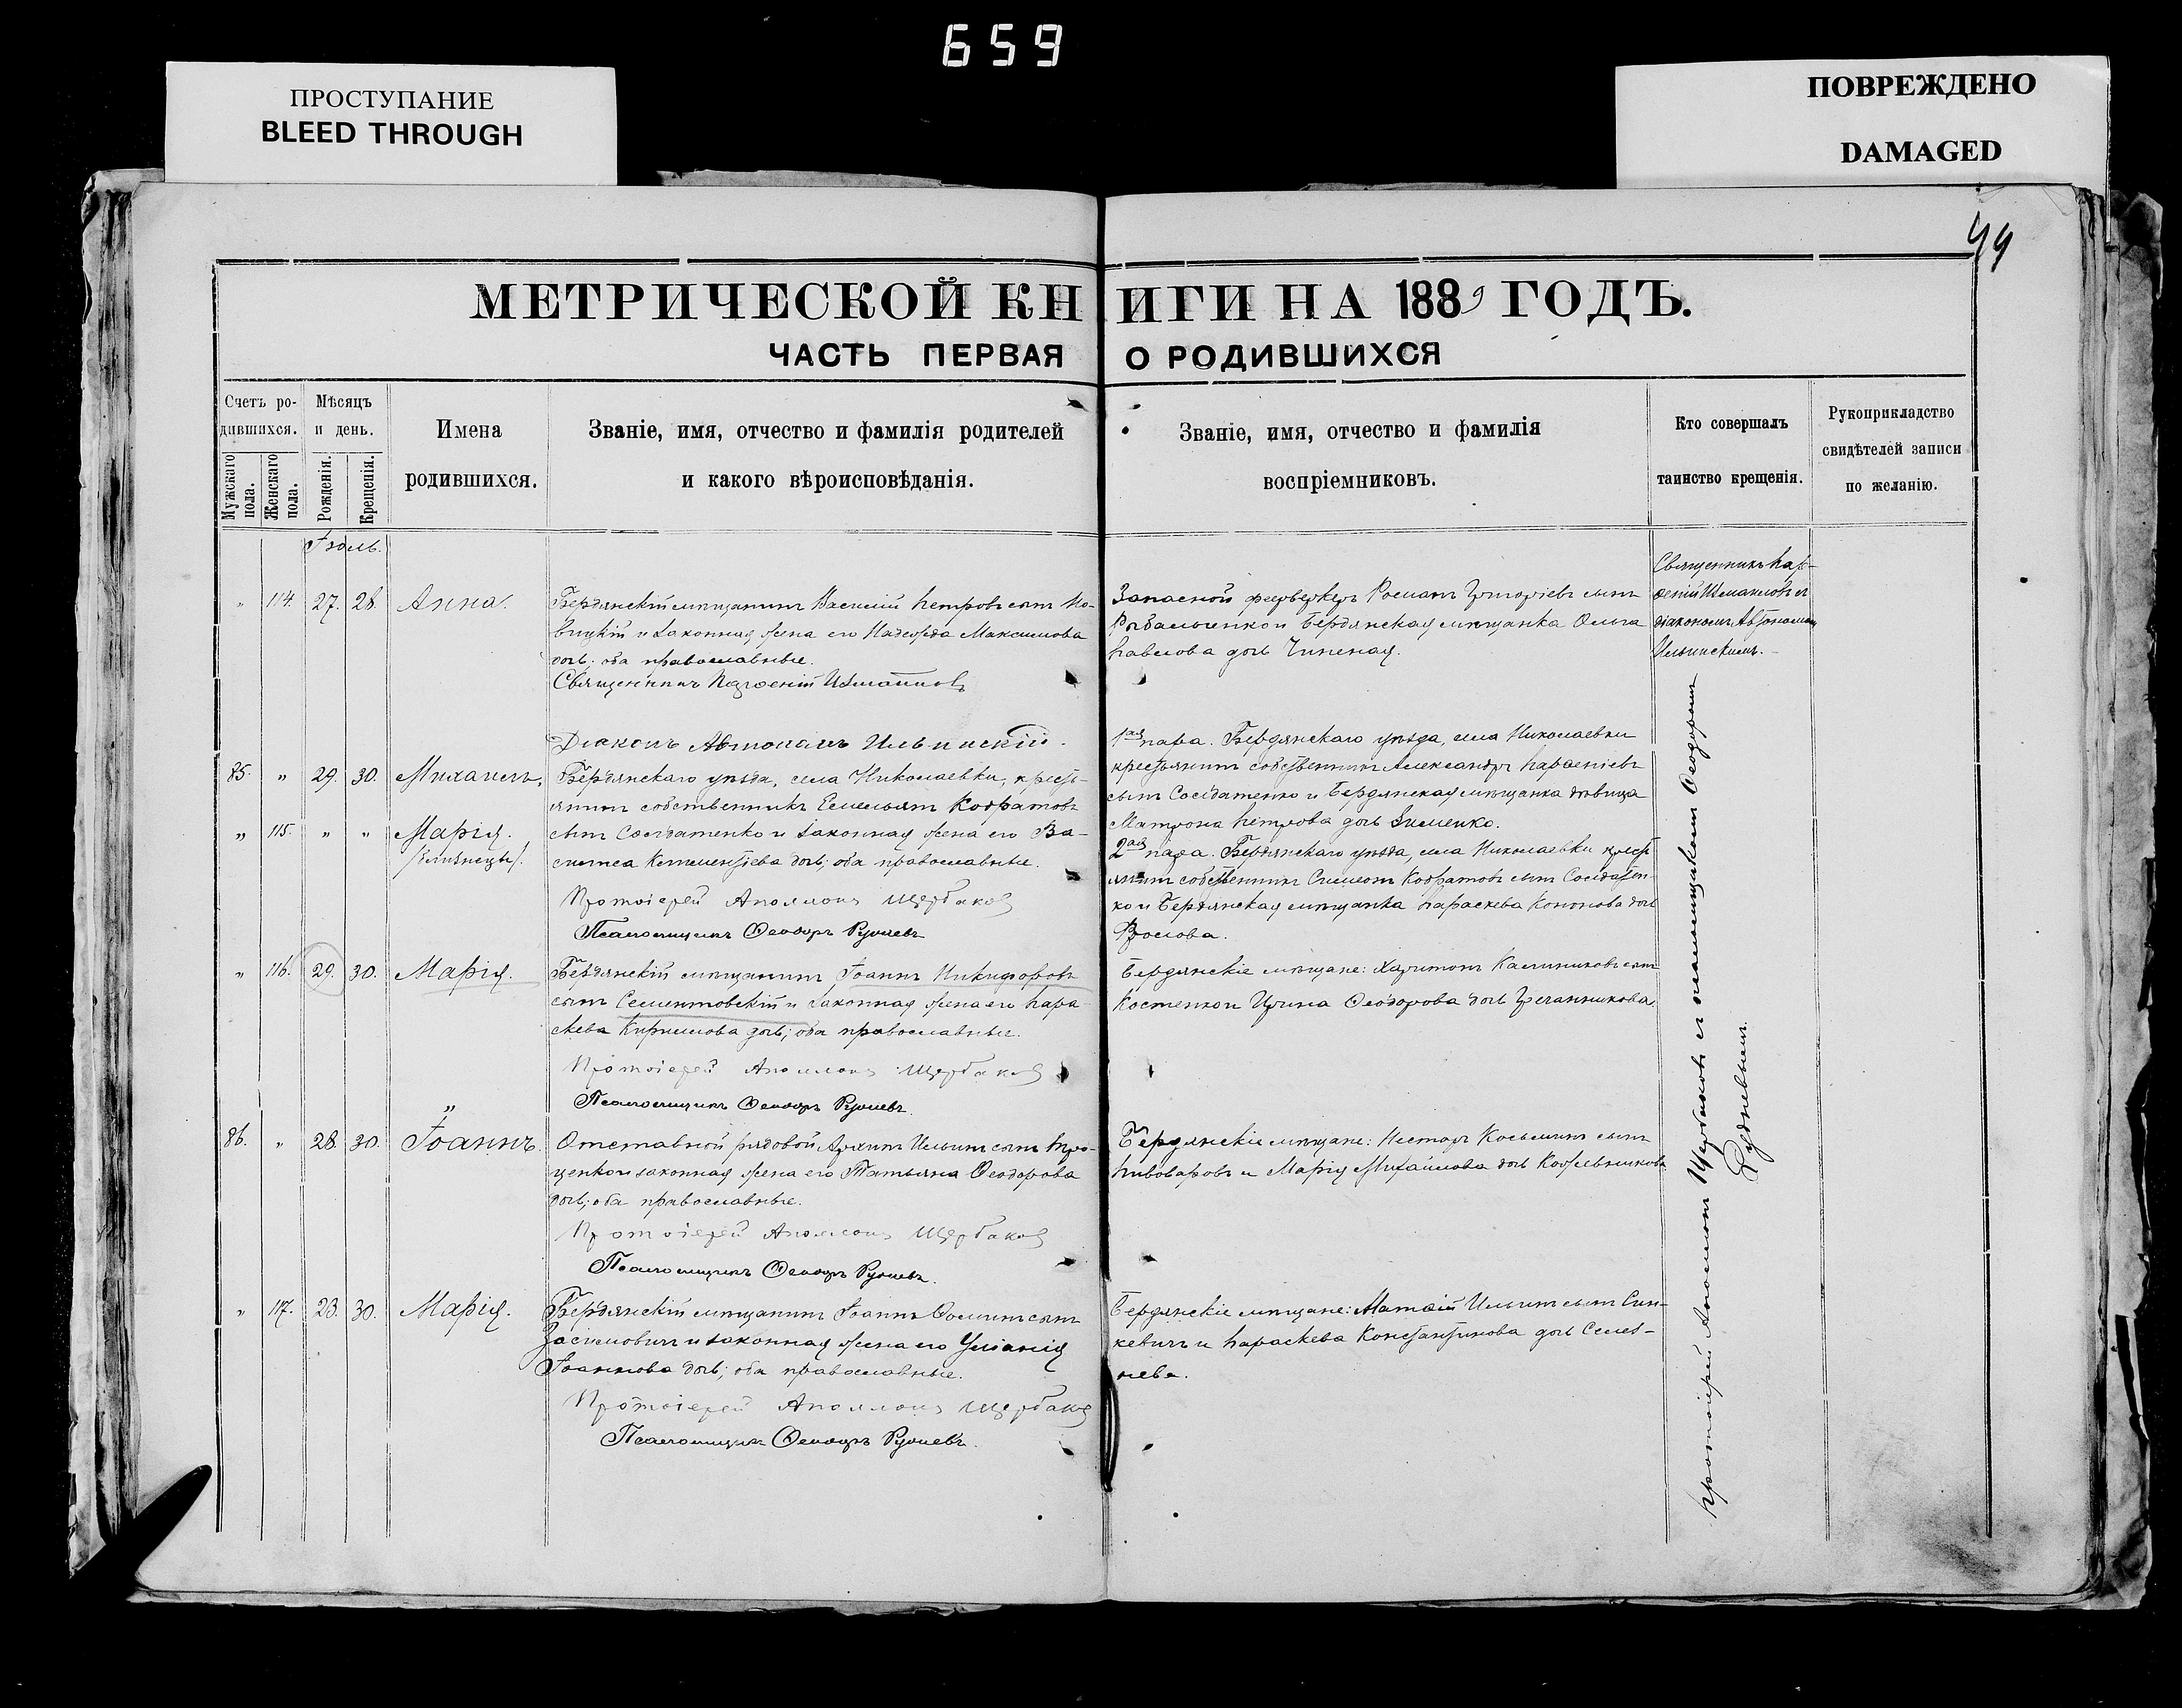 659
ПРОСТУПАНИЕ
BLEED THROUGH
ПОВРЕЖДЕНО
DAMAGED
44
МЕТРИЧЕСКОЙ КНИГИ НА 1889 ГОДЪ.
ЧАСТЬ ПЕРВАЯ О РОДИВШИХСЯ
Счетъ ро-
дившихся.
Мужскаго пола.
Женскаго пола.
Мѣсяцъ
и день.
Рожденія.
Крещенія.
Имена
родившихся.
Званіе, имя, отчество и фамилія родителей
и какого вѣроисповѣданія.
Званіе, имя, отчество и фамилія
воспріемниковъ.
Кто совершалъ
таинство крещенія.
Рукоприкладство
свидѣтелей записи
по желанію.
Іюль.
" 114. 27. 28. Анна.
Бердянскій мѣщанинъ Василій Петровъ сынъ Но-
вицкій и законная жена его Надежда Максимова
дочь; оба православные.
Священникъ Парѳеній Измаиловъ
Діаконъ Автономъ Ильинскій.
Запасной фейерверкеръ Романъ Григоріевъ сынъ
Рыбальченко и Бердянская мѣщанка Ольга
Павлова дочь
Священникъ Пар-
ѳеній Измаиловъ съ
діакономъ Автономомъ
Ильинскимъ.
85. " 29. 30. Михаилъ,
" 115. " " Марія.
/близнецы/.
Бердянскаго уѣзда, села Николаевки, кресть-
янинъ собственникъ Емельянъ Кодратовъ
сынъ Солдатенко и законная жена его Ва-
силиса Климентіева дочь; оба православные.
Протоіерей Аполлонъ Щербаковъ
Псаломщикъ Ѳеодоръ Рудневъ
1ая пара. Бердянскаго уѣзда, села Николаевки
крестьянинъ собственникъ Александръ Парѳеніевъ
сынъ Солдатенко и Бердянская мѣщанка дѣвица
Матрона Петрова дочь Зименко.
2ая пара. Бердянскаго уѣзда, села Николаевки крест
янинъ собственникъ Симеонъ Кодратовъ сынъ Солдатен-
ко и Бердянская мѣщанка Параскева Кононова дочь
" 116. 29. 30. Марія.
Бердянскій мѣщанинъ Іоаннъ Никифоровъ
сынъ Сементовскій и законная жена его Пара-
скева Кириллова дочь; оба православные.
Протоіерей Аполлонъ Щербаковъ
Псаломщикъ Ѳеодоръ Рудневъ.
Бердянскіе мѣщане: Харитонъ Калиниковъ сынъ
Костенко и Ирина Ѳеодорова дочь Гречанникова
86. " 28. 30. Іоаннъ.
Отставной рядовой Архипъ Ильинъ сынъ Про-
ценко и законная жена его Татьяна Ѳеодорова
дочь; оба православные.
Протоіерей Аполлонъ Щербаковъ
Псаломщикъ Ѳеодоръ Рудневъ.
Бердянскіе мѣщане: Несторъ Косьминъ сынъ
Пивоваровъ и Марія Михайлова дочь Кожевникова
" 117. 23. 30. Марія.
Бердянскій мѣщанинъ Іоаннъ Ѳоминъ сынъ
Засимовичъ и законная жена его Уліанія
Іоаннова дочь; оба православные.
Протоіерей Аполлонъ Щербаковъ
Псаломщикъ Ѳеодоръ Рудневъ.
Бердянскіе мѣщане: Матѳій Ильинъ сынъ Син-
кевичъ и Параскева Константинова дочь Селез-
нева.
Протоіерей Аполлонъ Щербаковъ съ псаломщикомъ Ѳеодоромъ
Рудневымъ.